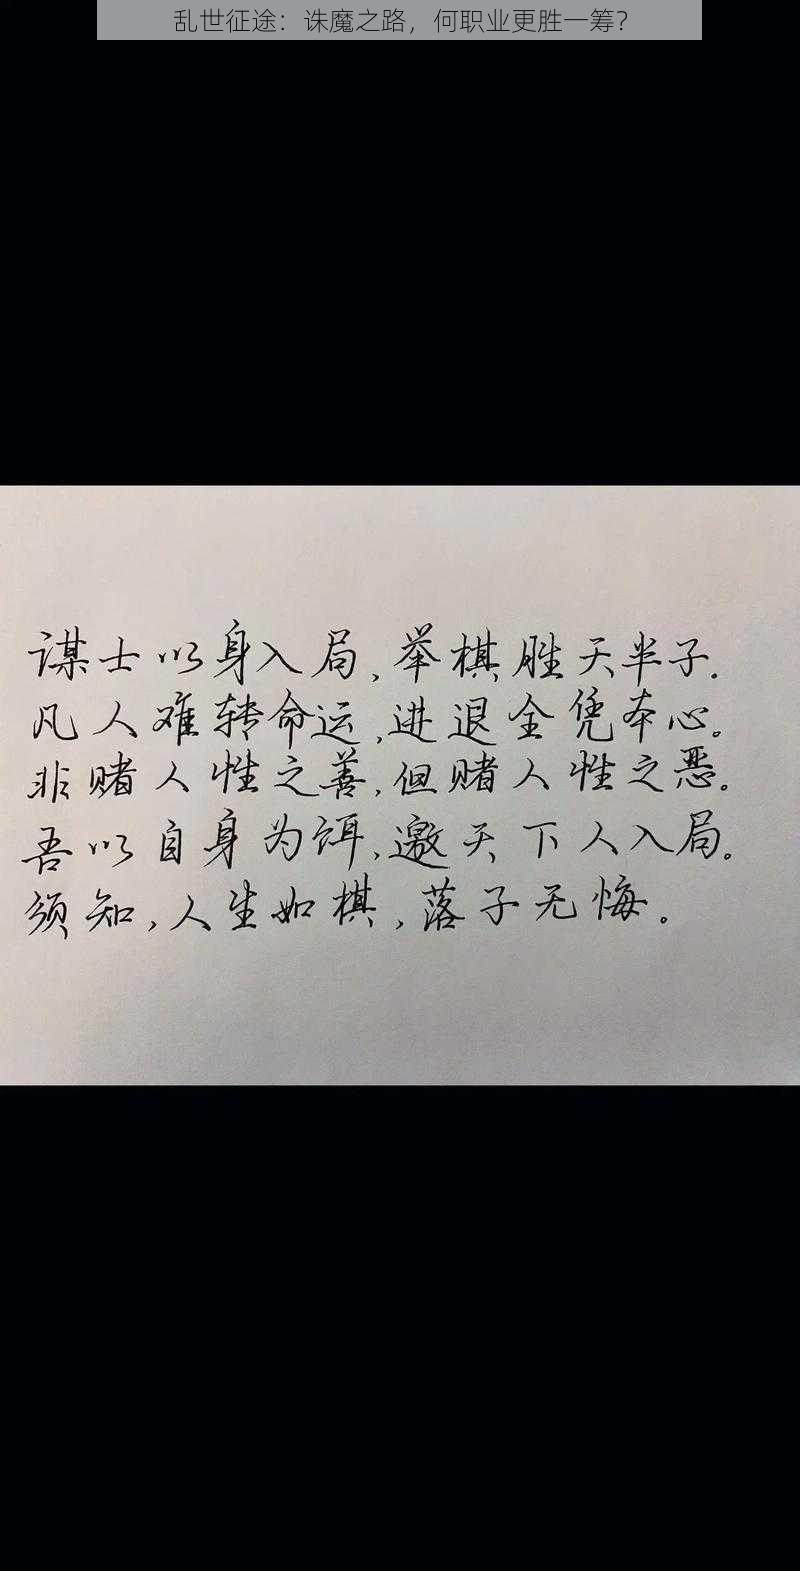 乱世征途：诛魔之路，何职业更胜一筹？
谋士以身入局，举棋胜天半子。
凡人难转命运，进退全凭本心。
非赌人性之善，但赌人性之恶。
吾以自身为饵，邀天下人入局。
须知，人生如棋，落子无悔。